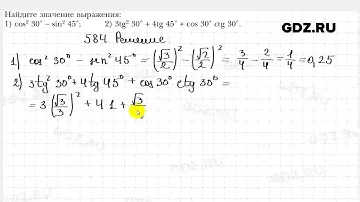 Найдите значение выражения:
1) cos² 30° – sin² 45°; 2) 3tg² 30° + 4tg 45° + cos 30° ctg 30°.
GDZ.RU
584. Решение.
1) cos² 30° – sin² 45° = (√3/2)² – (√2/2)² = 3/4 – 2/4 = 1/4 = 0,25
2) 3tg² 30° + 4tg 45° + cos 30° ctg 30° =
= 3(√3/3)² + 4·1 + √3/